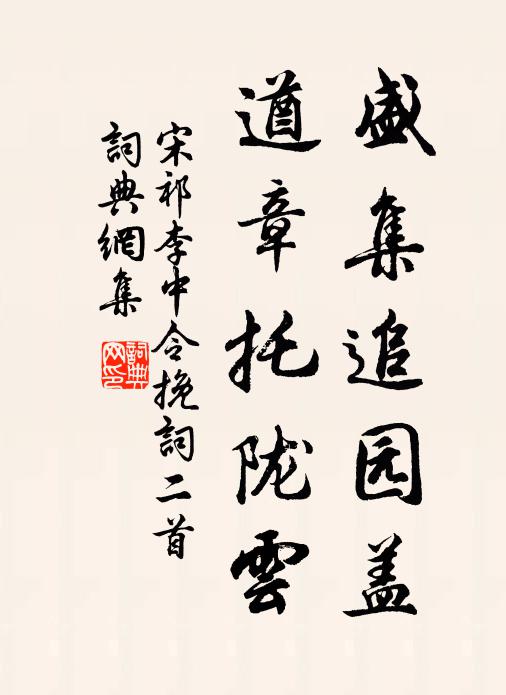 盛集追园盖
遒章托陇雲
宋祁李中令挽詞二首
詞典網集
詞典网印